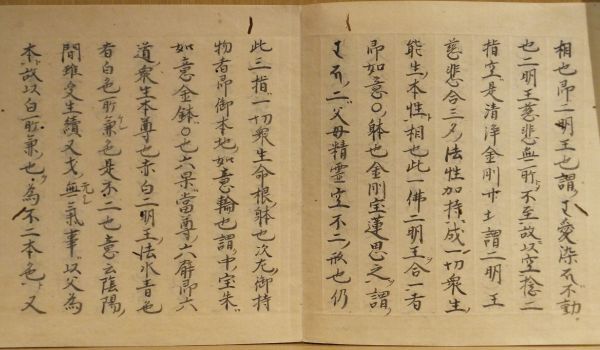 相也即二明王也謂愛染不動
也二明王慈悲無所不至故以空捻二
指空是清浄金剛
謂二明王
慈悲合三名法性加持成一切衆生
能生本性相也此一佛二明王合一者
即如意〇躰也金剛宝蓮思之謂
不二父母精霊空不二
也仍
此三指一切衆生命根躰也次左御持
物者即御本地如意輪也謂中宝朱
如意金鉢〇也六果當尊六
即六
道衆生本尊也赤白二明王法水青色
者白色所兼色是不二也意云陰陽
間雖受生續又
無氣事以父為
本故以白一所兼也為不二本色又